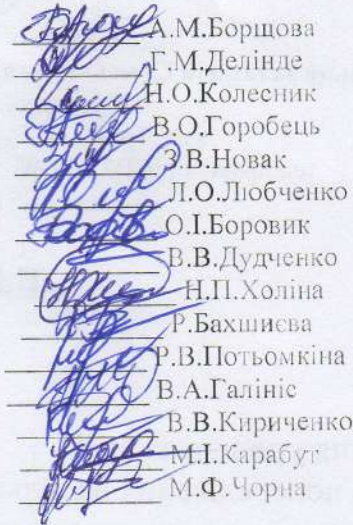 А.М.Борщова
Г.М.Делінде
Н.О.Колесник
В.О.Горобець
З.В.Новак
Л.О.Любченко
О.І.Боровик
В.В.Дудченко
Н.П.Холіна
Р.Бахшиєва
Р.В.Потьомкіна
В.А.Галініс
В.В.Кириченко
М.І.Карабут
М.Ф.Чорна